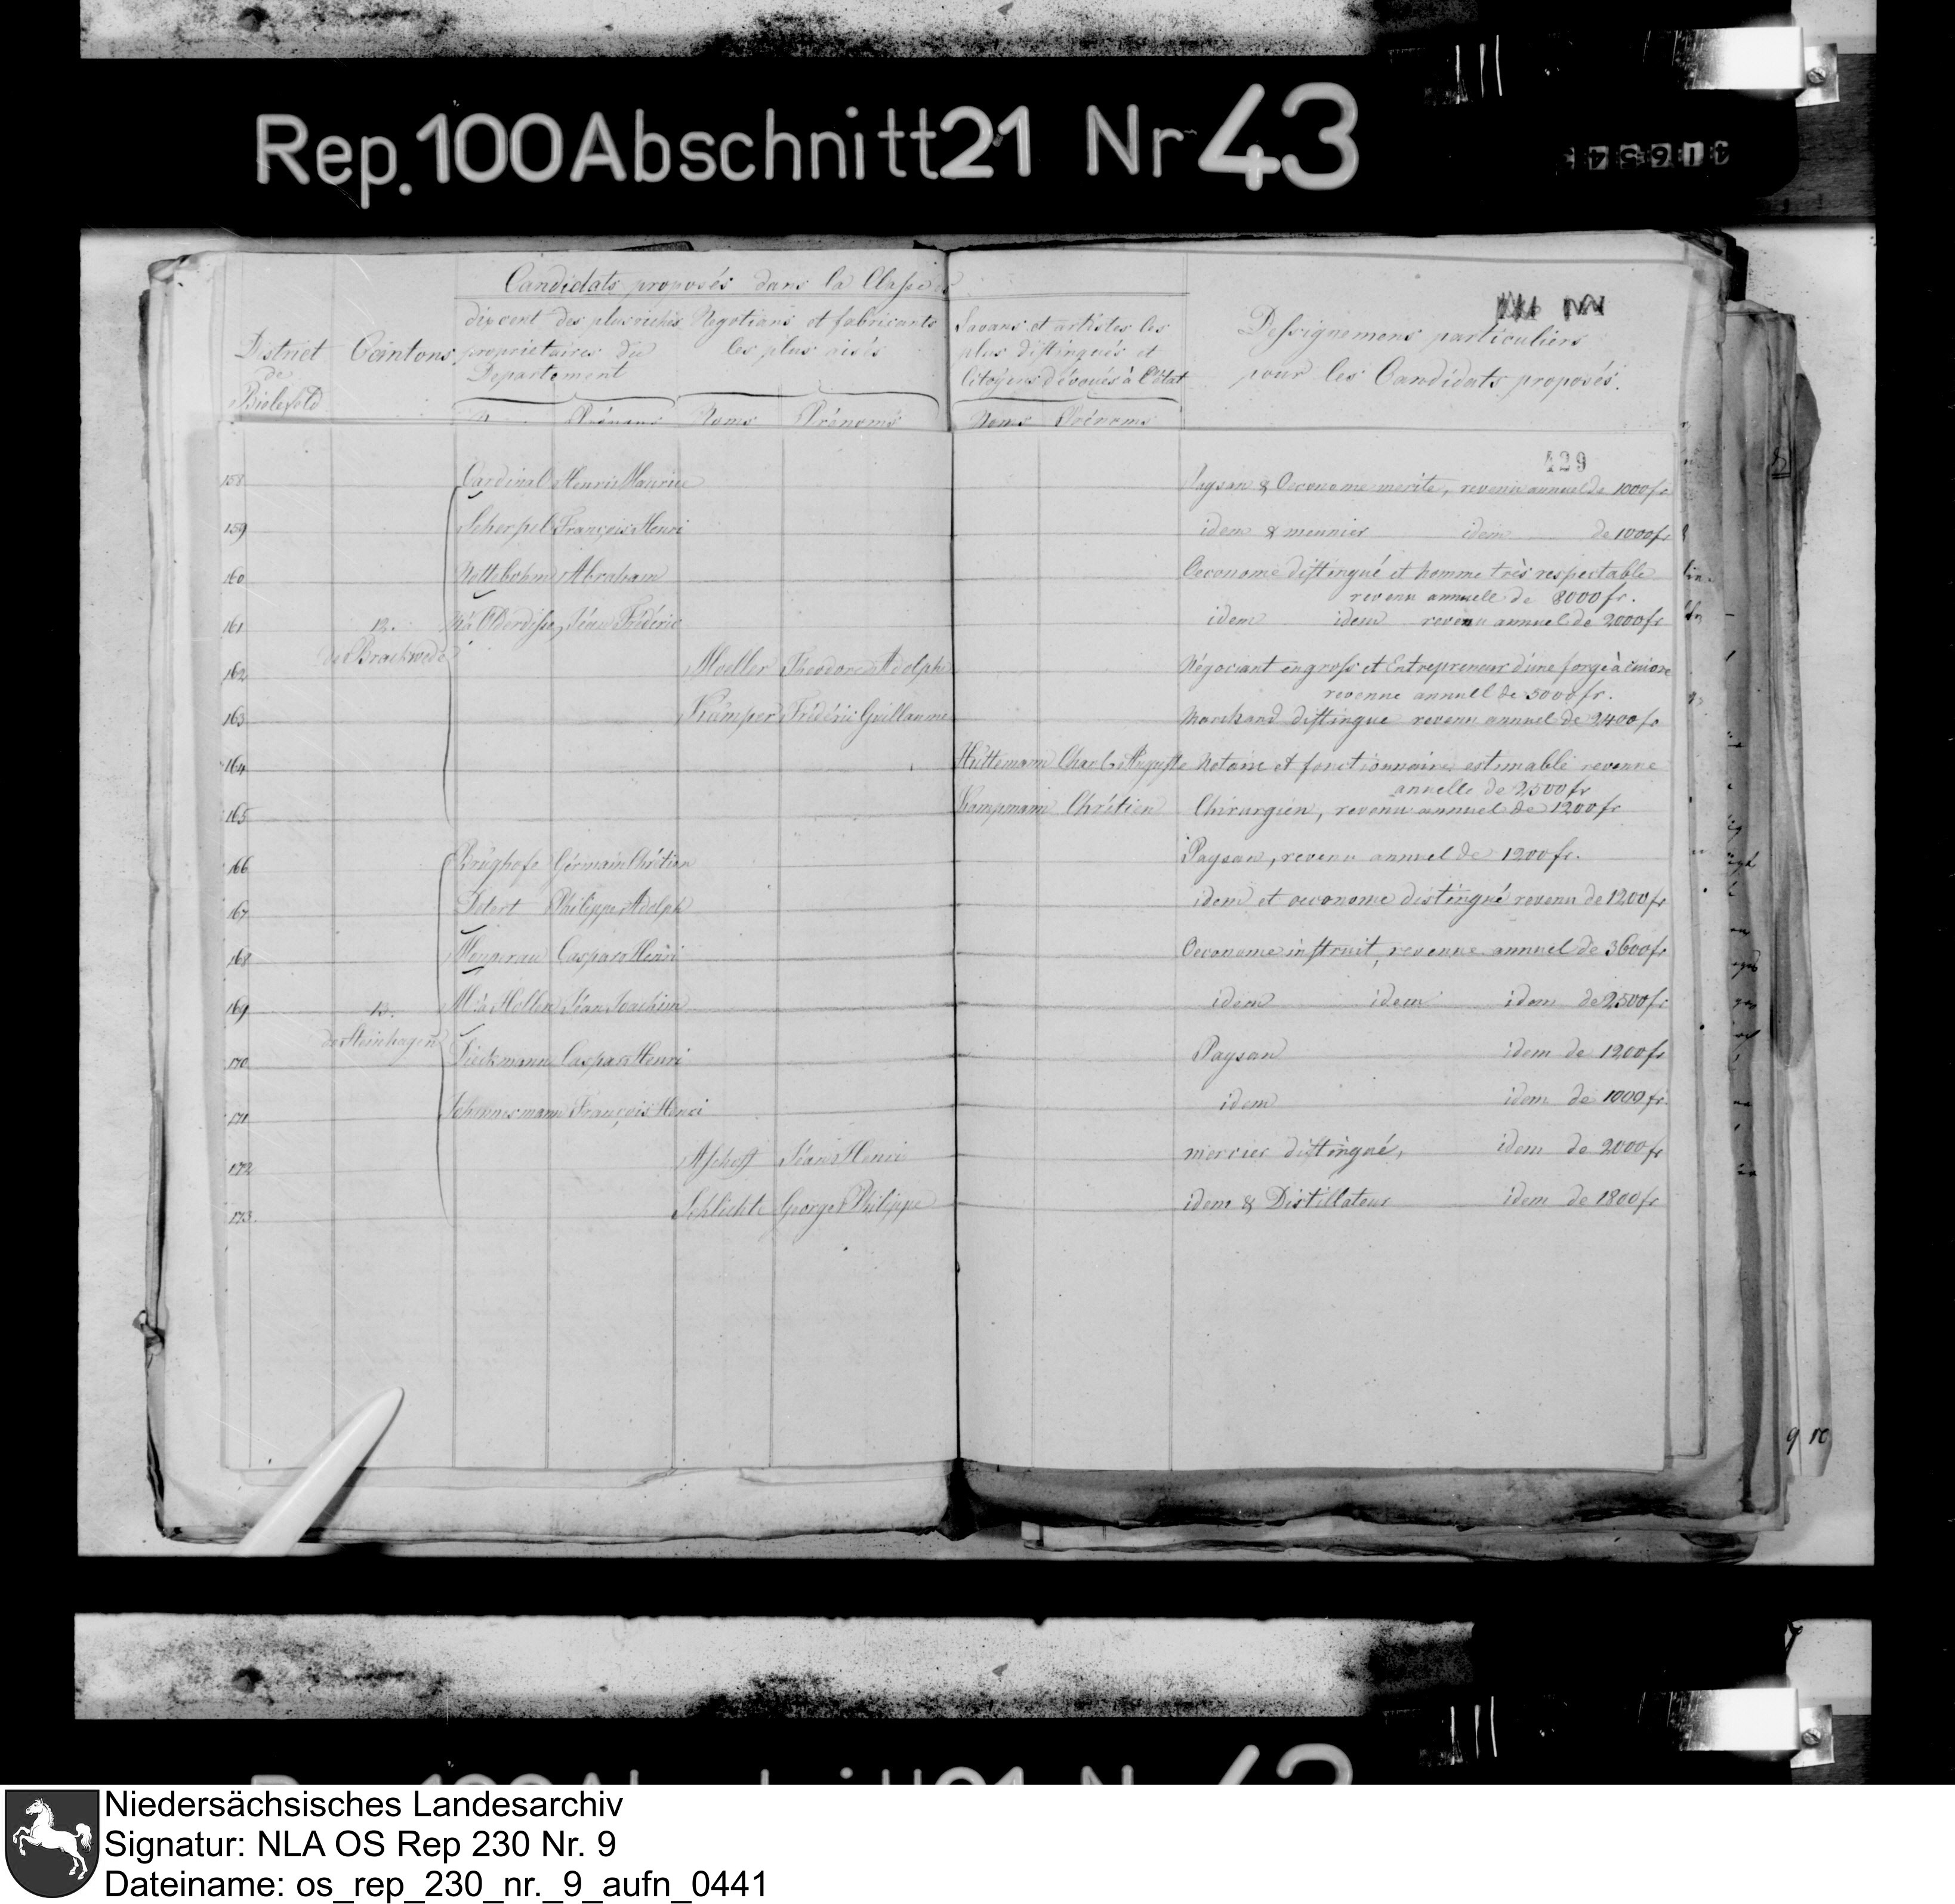 Rep.100 Abschnitt 21 Nr 43
Candidats proposés dans la Classe
dix cent des plus riches Negotians et fabricants Savans et artistes les
District Cantons propriétaires du les plus aisés plus distingués et Dessignemens particuliers
de Departement Citoyens dévoués à l'état pour les Candidats proposés.
Bielefeld
Prénoms Noms Prénoms Noms Prénoms
429
158 Cardinal Henri Maurice Paysan & Oeconome merite, revenu annuel de 1000 fr
159 François Henri idem & meunier idem de 1000 fr
160 Nottebohm Abraham Oeconome distingué et homme très respectable
revenu annuelle de 8000 fr.
161 12. Jéan Fréderic idem idem revenu annuel de 2000 fr
de Brackwede
162 Moeller Theodore Adolphe Négociant en gross et Entrepreneur d'une forge à cuivre
revenue annuell de 5000 fr.
163 Kämper Fréderic Guillaume Marchand distingue revenu annuel de 2400 fr
164 Hüttemann Charles Auguste Notaire et fonctionnaire estimable revenue
annuelle de 2500 fr
165 Kampmann Chrétien Chirurgien, revenu annuel de 1200 fr
166 Brüghofe Germain Chrétien Paysan, revenu annuel de 1200 fr.
167 Detert Philippe Adolph idem et oeconome distingué revenu de 1200 fr
168 Caspar Henri Oeconome instruit, revenue annuel de 3600 fr
169 13. Jéan Joachim idem idem idem de 2500 fr
de Steinhagen
170 Dieckmann Caspar Henri Paysan idem de 1200 fr
171 François Henri idem idem de 1000 fr
172 Aschoff Jéan Henri mercier distingué, idem de 2000 fr
173 Schlichte George Philippe idem & Distillateur idem de 1800 fr
Niedersächsisches Landesarchiv
Signatur: NLA OS Rep 230 Nr. 9
Dateiname: os_rep_230_nr._9_aufn_0441